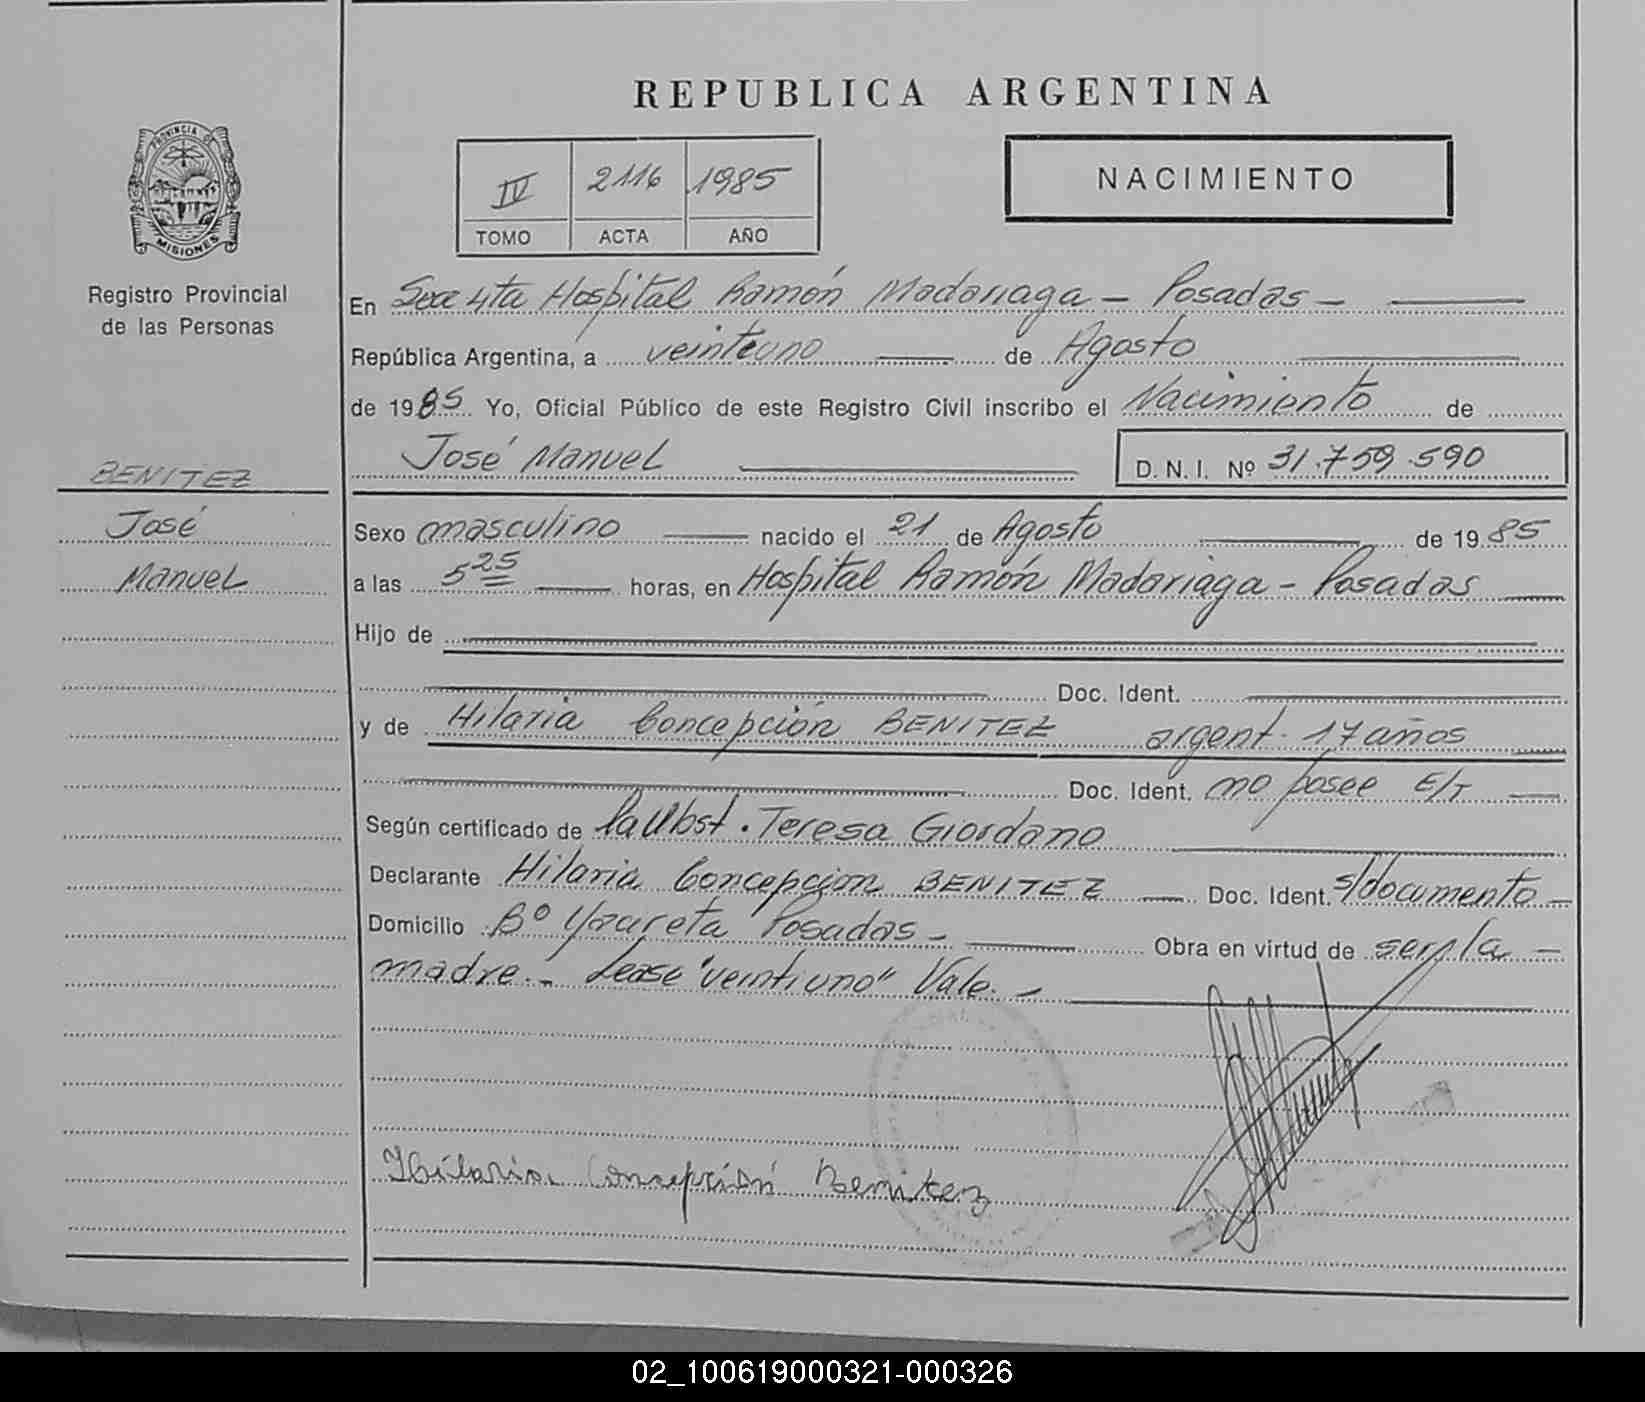 REPUBLICA ARGENTINA
PROVINCIA DE
MISIONES
Registro Provincial
de las Personas
IV 2116 1985
TOMO ACTA AÑO
NACIMIENTO
En Secc 4ta Hospital Ramón Madariaga - Posadas -
República Argentina, a veintiuno de Agosto
de 1985 Yo, Oficial Público de este Registro Civil inscribo el Nacimiento de
José Manuel D. N. I. Nº 31.759.590
BENITEZ
José
Manuel
Sexo masculino nacido el 21 de Agosto de 1985
a las 5 25 horas, en Hospital Ramón Madariaga - Posadas
Hijo de
Doc. Ident.
y de Hilaria Concepción BENITEZ argent. 17 años
Doc. Ident. no posee E/T
Según certificado de la Obst. Teresa Giordano
Declarante Hilaria Concepcion BENITEZ Doc. Ident. s/documento -
Domicilio Bº Yacireta Posadas - Obra en virtud de ser la -
madre.- Lease "veintiuno" Vale. -
Hilaria Concepción Benitez
02_100619000321-000326